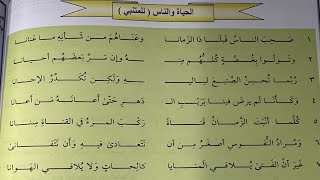 الحياة والناس ( للمتنبي )
١ صَحِبَ الناسُ قَبلَنا ذا الزَمانا وَعَناهُم مِن شَأنِهِ ما عَنانا
٢ وَتَوَلَّوا بِغُصَّةٍ كُلُّهُم مِنـ ـهُ وَإِن سَرَّ بَعضَهُم أَحيانا
٣ رُبَّما تُحسِنُ الصَنيعَ لَياليـ ـهِ وَلَكِن تُكَدِّرُ الإِحسانا
٤ وَكَأَنّا لَم يَرضَ فينا بِرَيبِ الـ دَهرِ حَتّى أَعانَهُ مَن أَعانا
٥ كُلَّما أَنبَتَ الزَمانُ قَناةً رَكَّبَ المَرءُ في القَناةِ سِنانا
٦ وَمُرادُ النُفوسِ أَصغَرُ مِن أَن نَتَعادى فيهِ وَأَن نَتَفانى
٧ غَيرَ أَنَّ الفَتى يُلاقي المَنايا كالِحاتٍ وَلا يُلاقي الهَوانا